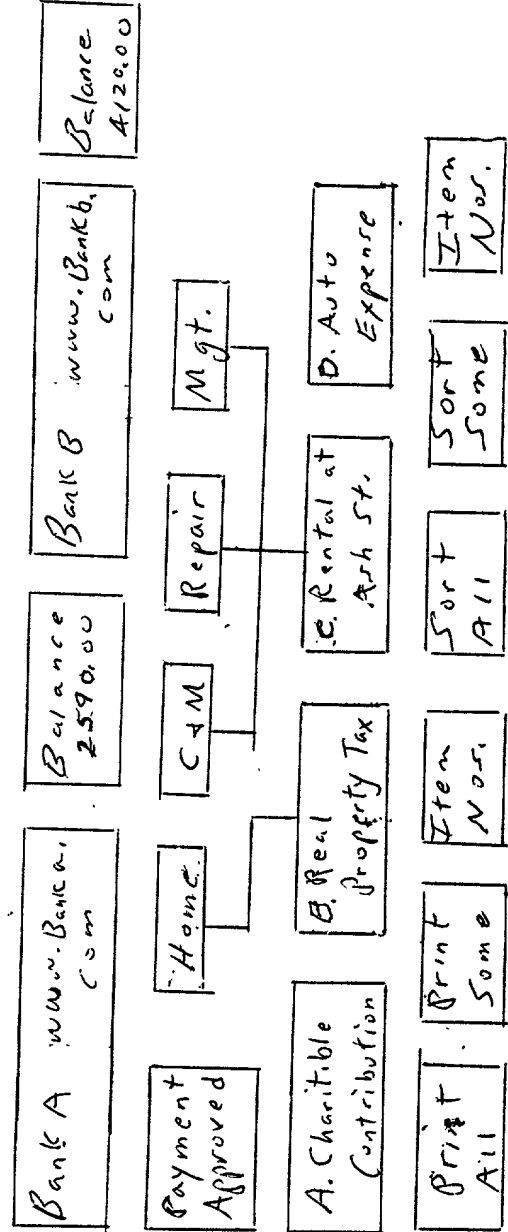 Bank A www.Banka.
com
Balance
2590.00
Bank B www.Bankb.
com
Balance
4120.00
Payment
Approved
Home
C & M
Repair
Mgt.
A. Charitible
Contribution
B. Real
Property Tax
C. Rental at
Ash St.
D. Auto
Expense
Print
All
Print
Some
Item
Nos.
Sort
All
Sort
Some
Item
Nos.